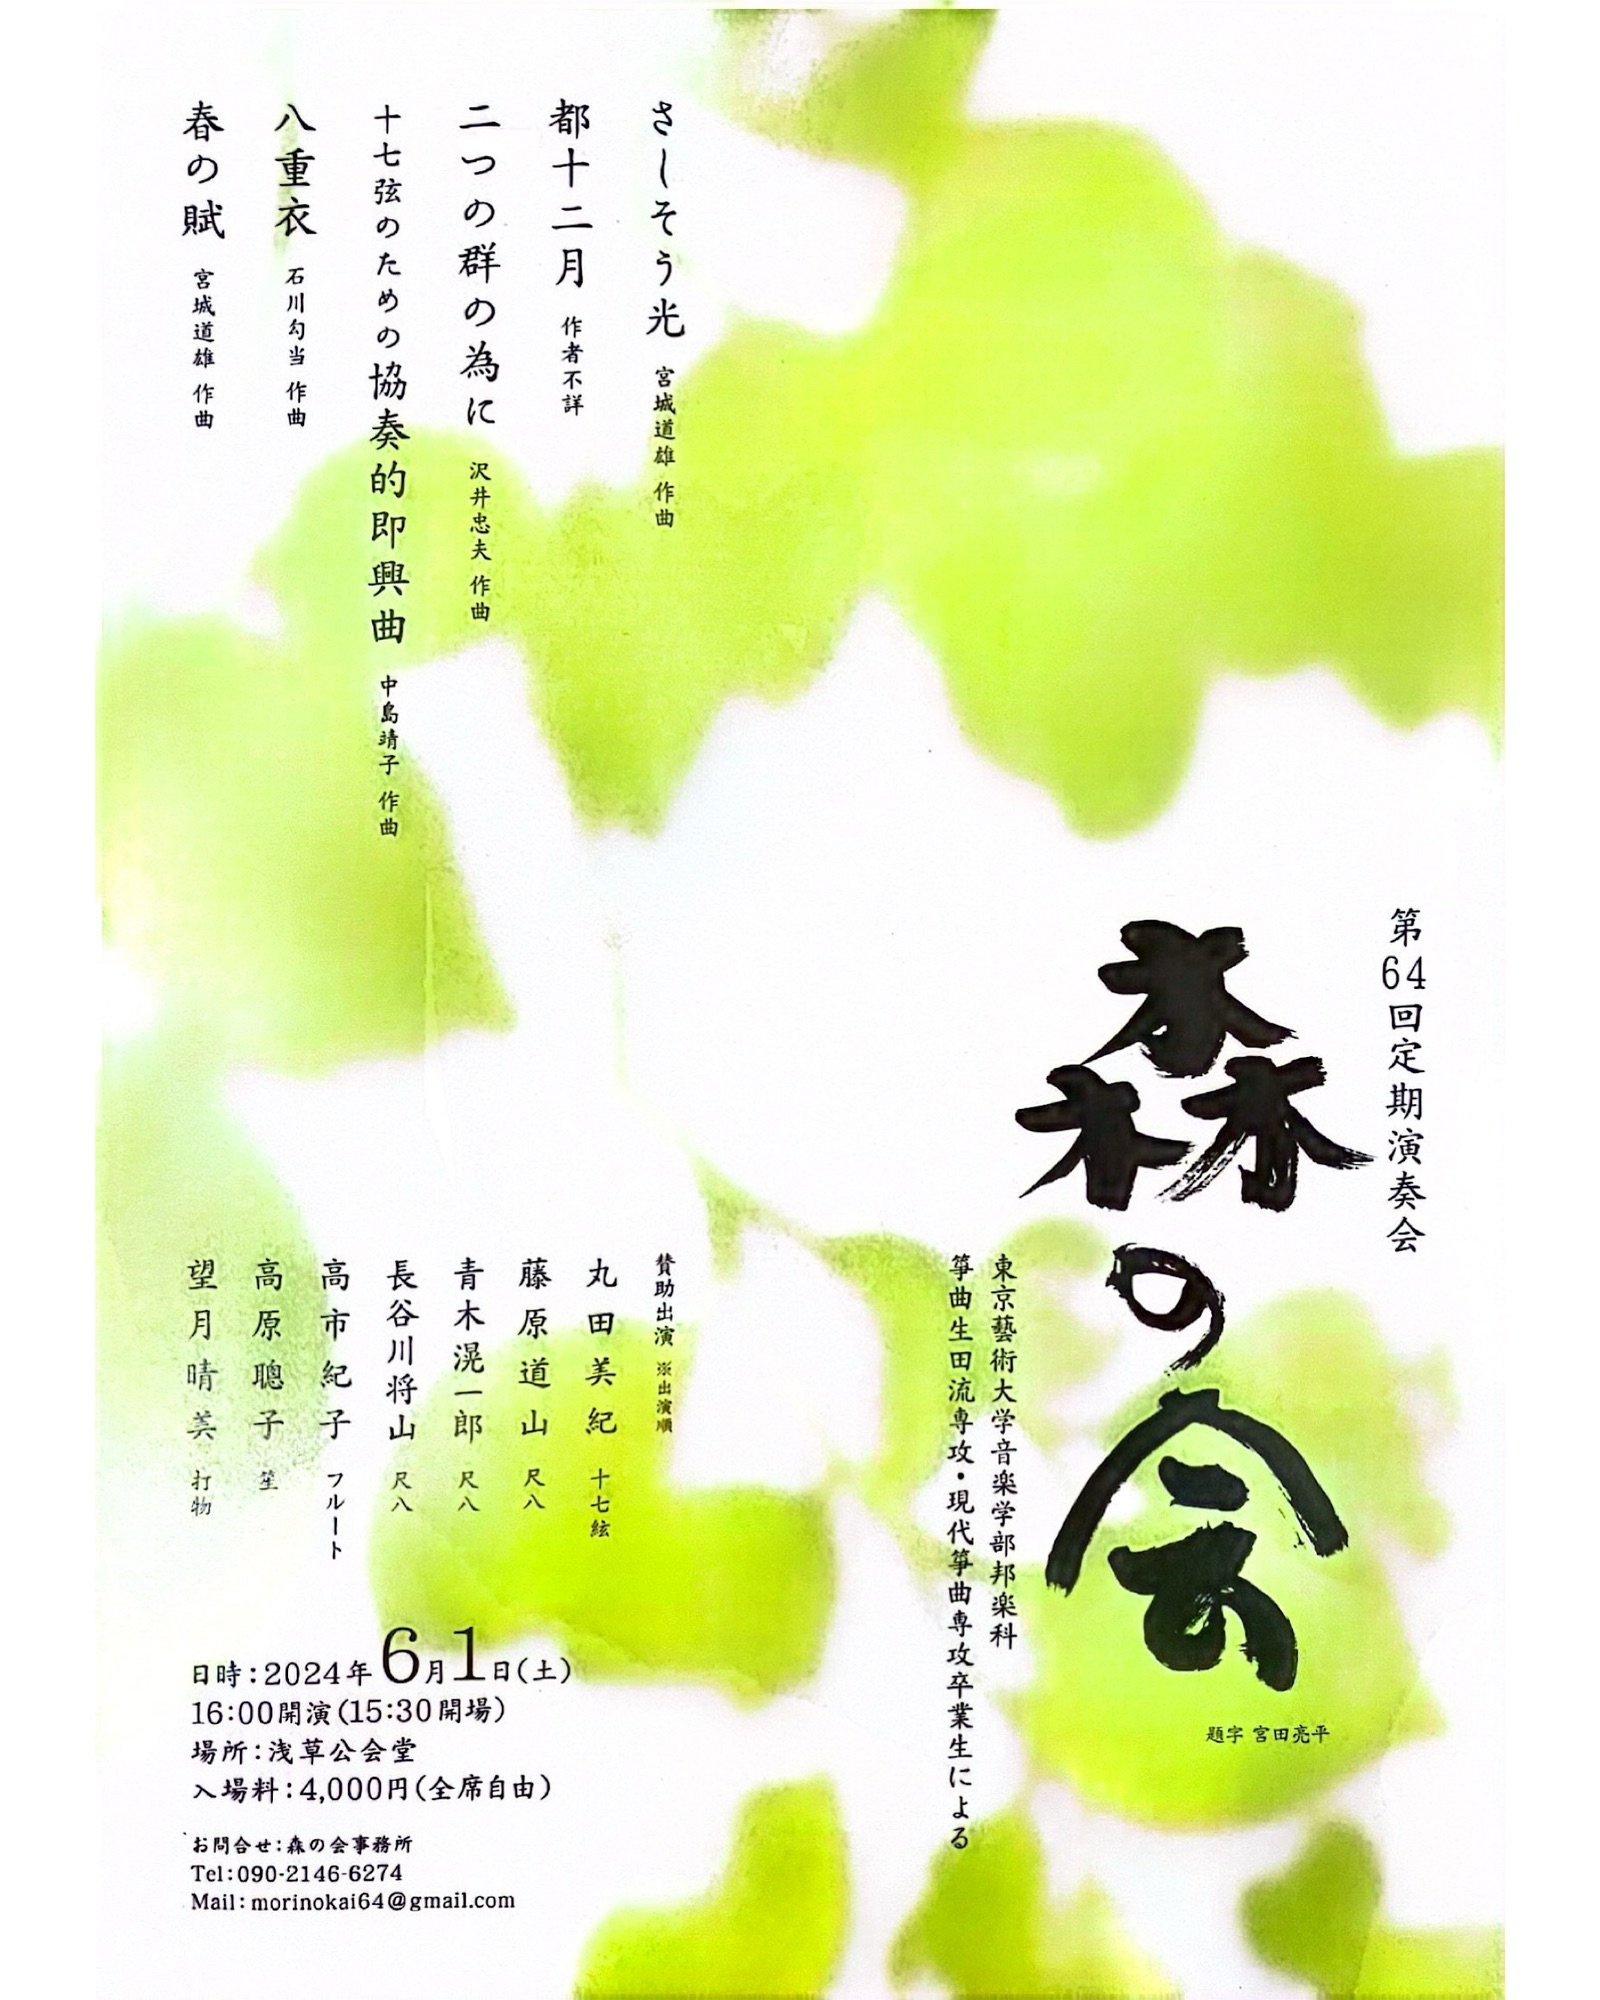 さしそう光 宮城道雄 作曲
都十二月 作者不詳
二つの群の為に 沢井忠夫 作曲
十七弦のための協奏的即興曲 中島靖子 作曲
八重衣 石川勾当 作曲
春の賦 宮城道雄 作曲
第64回定期演奏会
森の会
題字 宮田亮平
東京藝術大学音楽学部邦楽科
箏曲生田流専攻・現代箏曲専攻卒業生による
賛助出演 ※出演順
丸田美紀 十七絃
藤原道山 尺八
青木滉一郎 尺八
長谷川将山 尺八
高市紀子 フルート
高原聰子 笙
望月晴美 打物
日時:2024年6月1日(土)
16:00開演(15:30開場)
場所:浅草公会堂
入場料:4,000円(全席自由)
お問合せ:森の会事務所
Tel:090-2146-6274
Mail:morinokai64@gmail.com